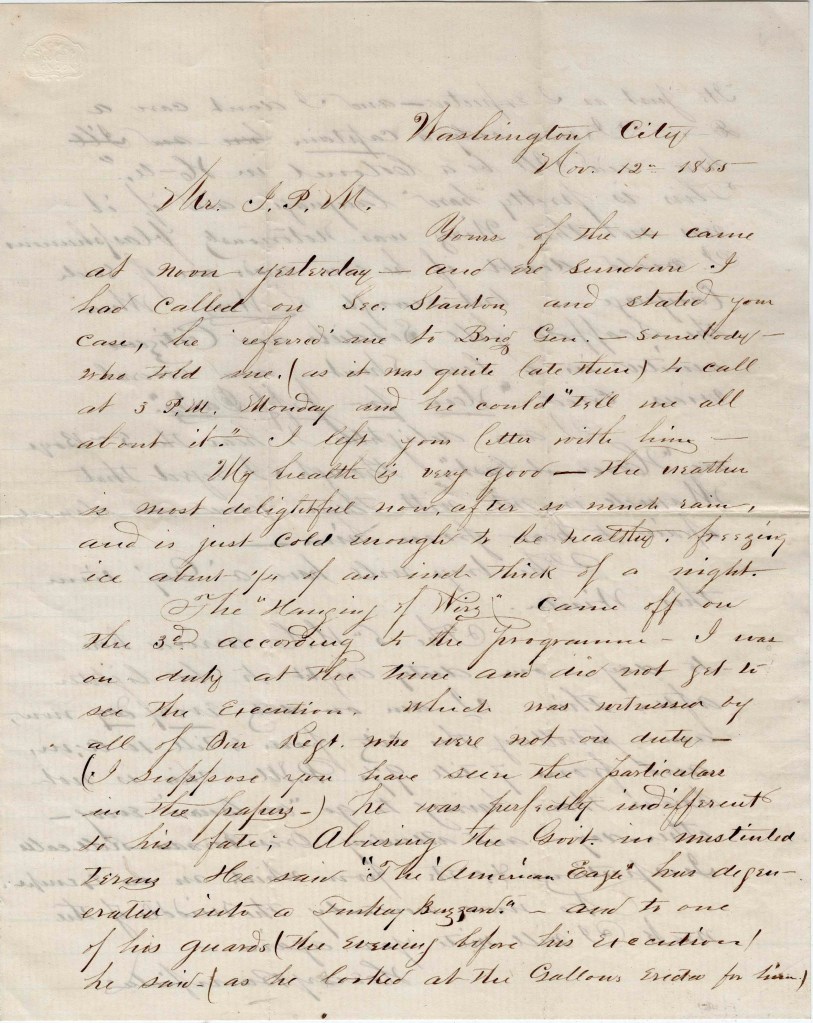 Washington City
Nov. 12th 1865
Mr. J. P. M.
Yours of the 4 came
at noon yesterday — and ere sundown I
had called on Sec. Stanton, and stated your
case, he 'referred' me to Brig Gen. — Somebody —
who told me (as it was quite late then) to call
at 3 P.M. Monday and he could "tell me all
about it." I left your letter with him —
My health is very good — the weather
is most delightful now, after so much rain,
and is just cold enough to be healthy. freezing
ice about 1/4 of an inch thick of a night.
The "Hanging of Wirz" came off on
the 3d according to the programme — I was
on duty at the time and did not get to
see the Execution. which was witnessed by
all of Our Regt. who were not on duty —
(I suppose you have seen the particulars
in the papers —) he was perfectly indifferent
to his fate; Abusing the Govt. in unstinted
terms He said "The 'American Eagle' has degen-
erated into a Turkey Buzzard." — and to one
of his guards (the evening before his Execution)
he said — (as he looked at the Gallows Erected for him)